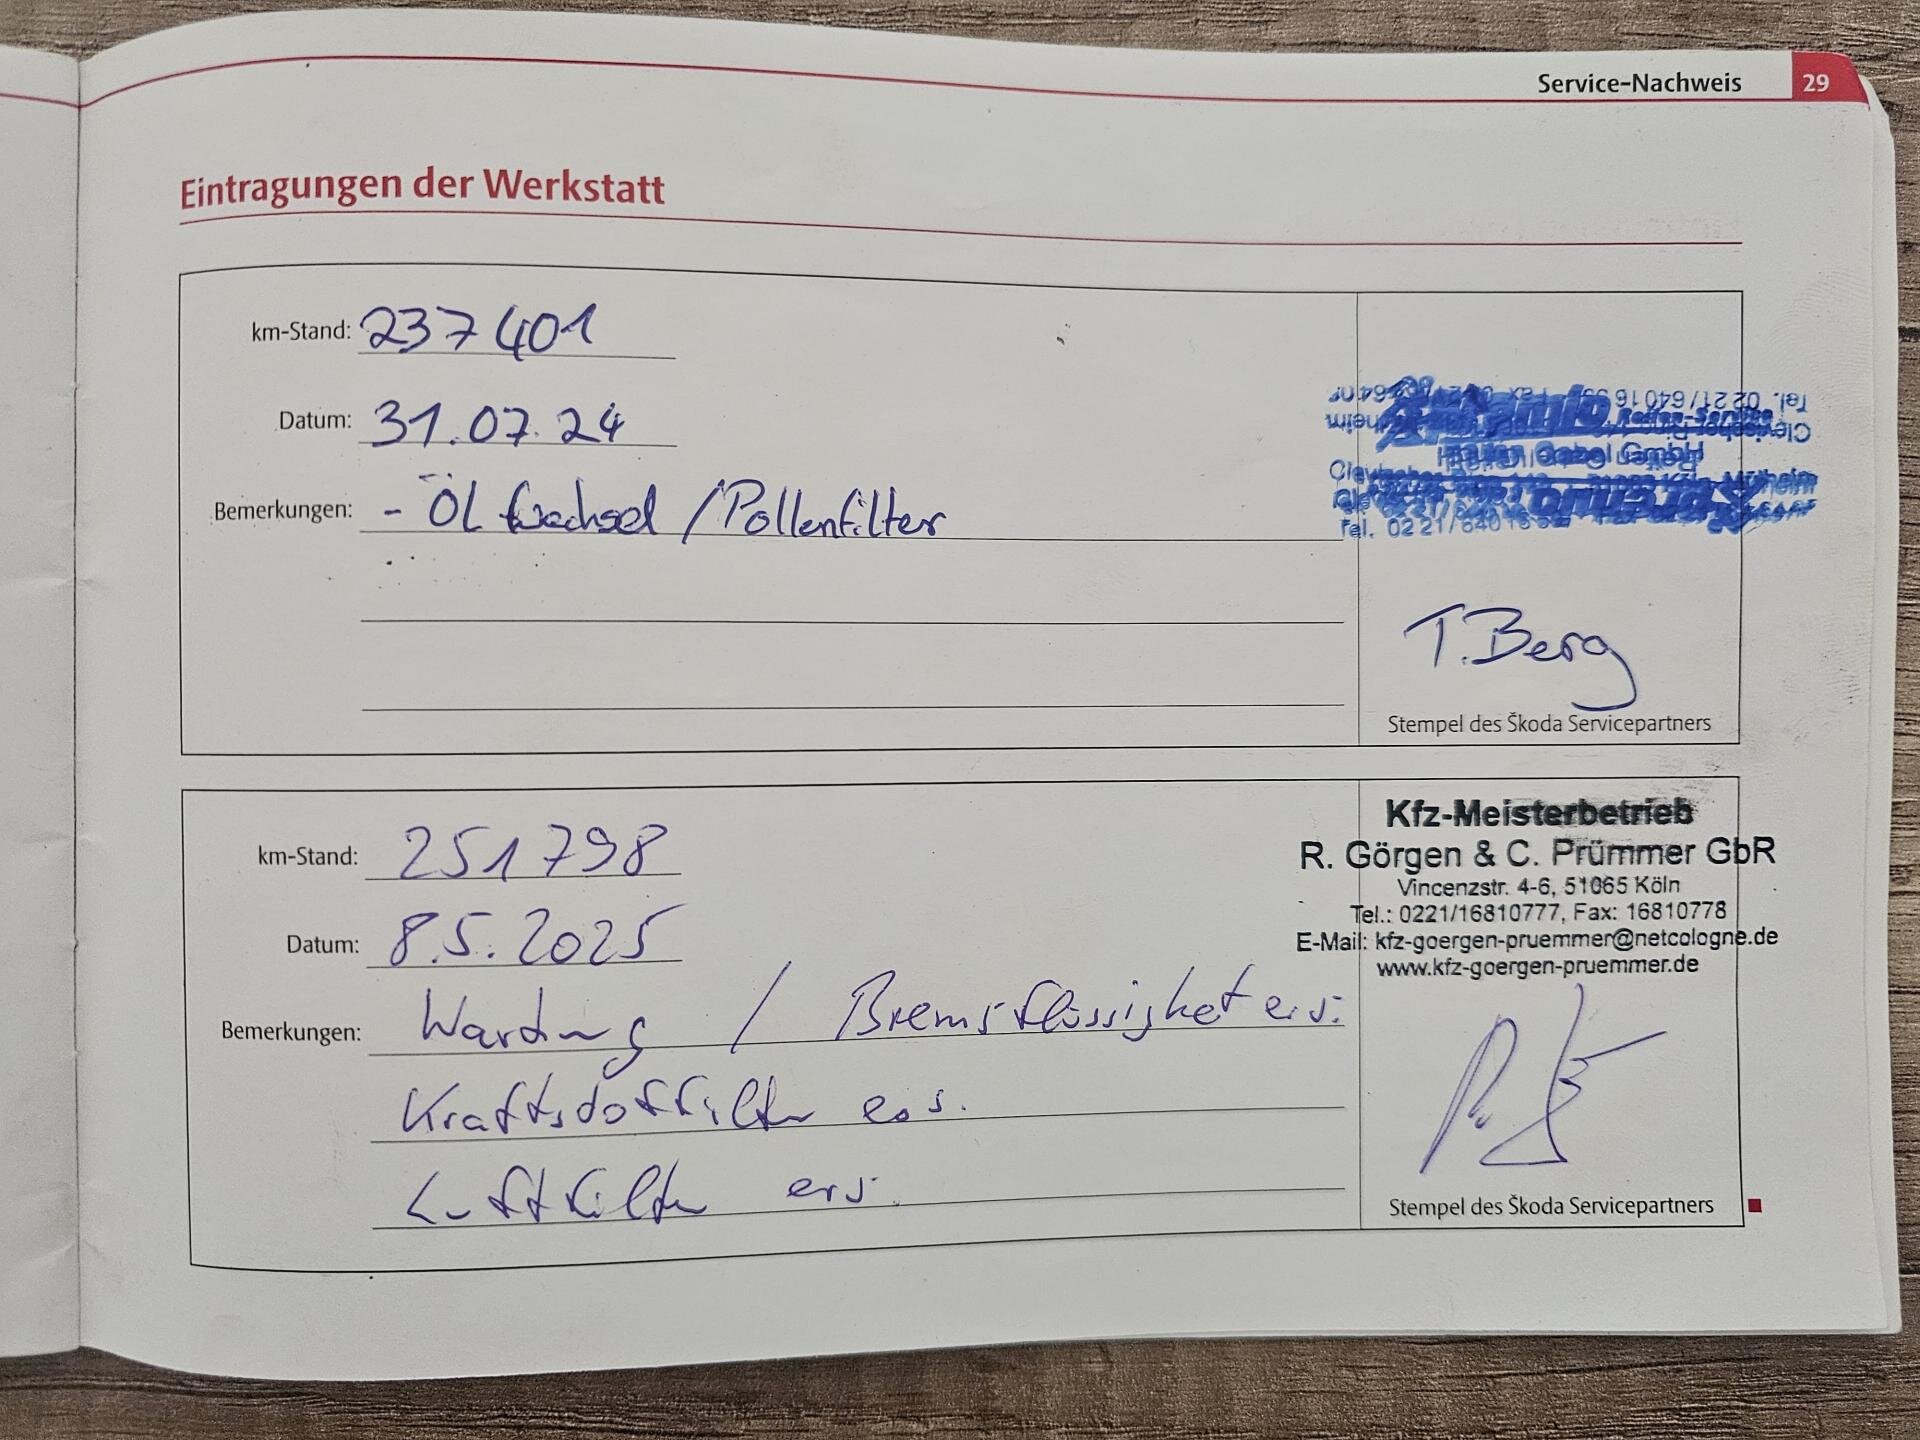 Service-Nachweis 29
Eintragungen der Werkstatt
km-Stand: 237401
Datum: 31.07.24
Bemerkungen: - ÖL wechsel / Pollenfilter
Tel. 0221/64016
T. Berg
Stempel des Škoda Servicepartners
Kfz-Meisterbetrieb
R. Görgen & C. Prümmer GbR
Vincenzstr. 4-6, 51065 Köln
Tel.: 0221/16810777, Fax: 16810778
E-Mail: kfz-goergen-pruemmer@netcologne.de
www.kfz-goergen-pruemmer.de
km-Stand: 251798
Datum: 8.5.2025
Bemerkungen: Wartung / Bremsflüssigkeit ers.
Kraftstoffilter ers.
Luftfilter ers.
Stempel des Škoda Servicepartners